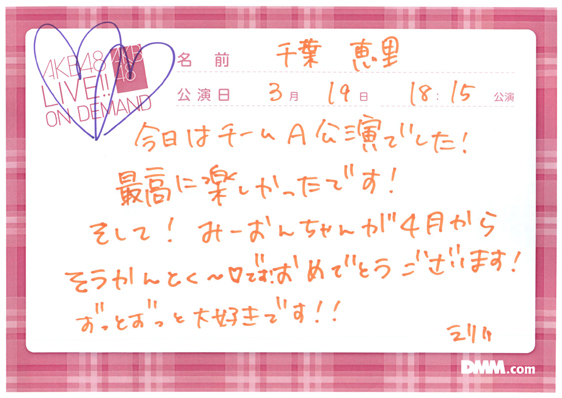 AKB48
LIVE!!
ON DEMAND
AKB
48
名前 千葉 恵里
公演日 3月 19日 18:15 公演
今日はチームA公演でした!
最高に楽しかったです!
そして! みーおんちゃんが4月から
そうかんとく〜♡です!おめでとうございます!
ずっとずっと大好きです!!
えりい
DMM.com